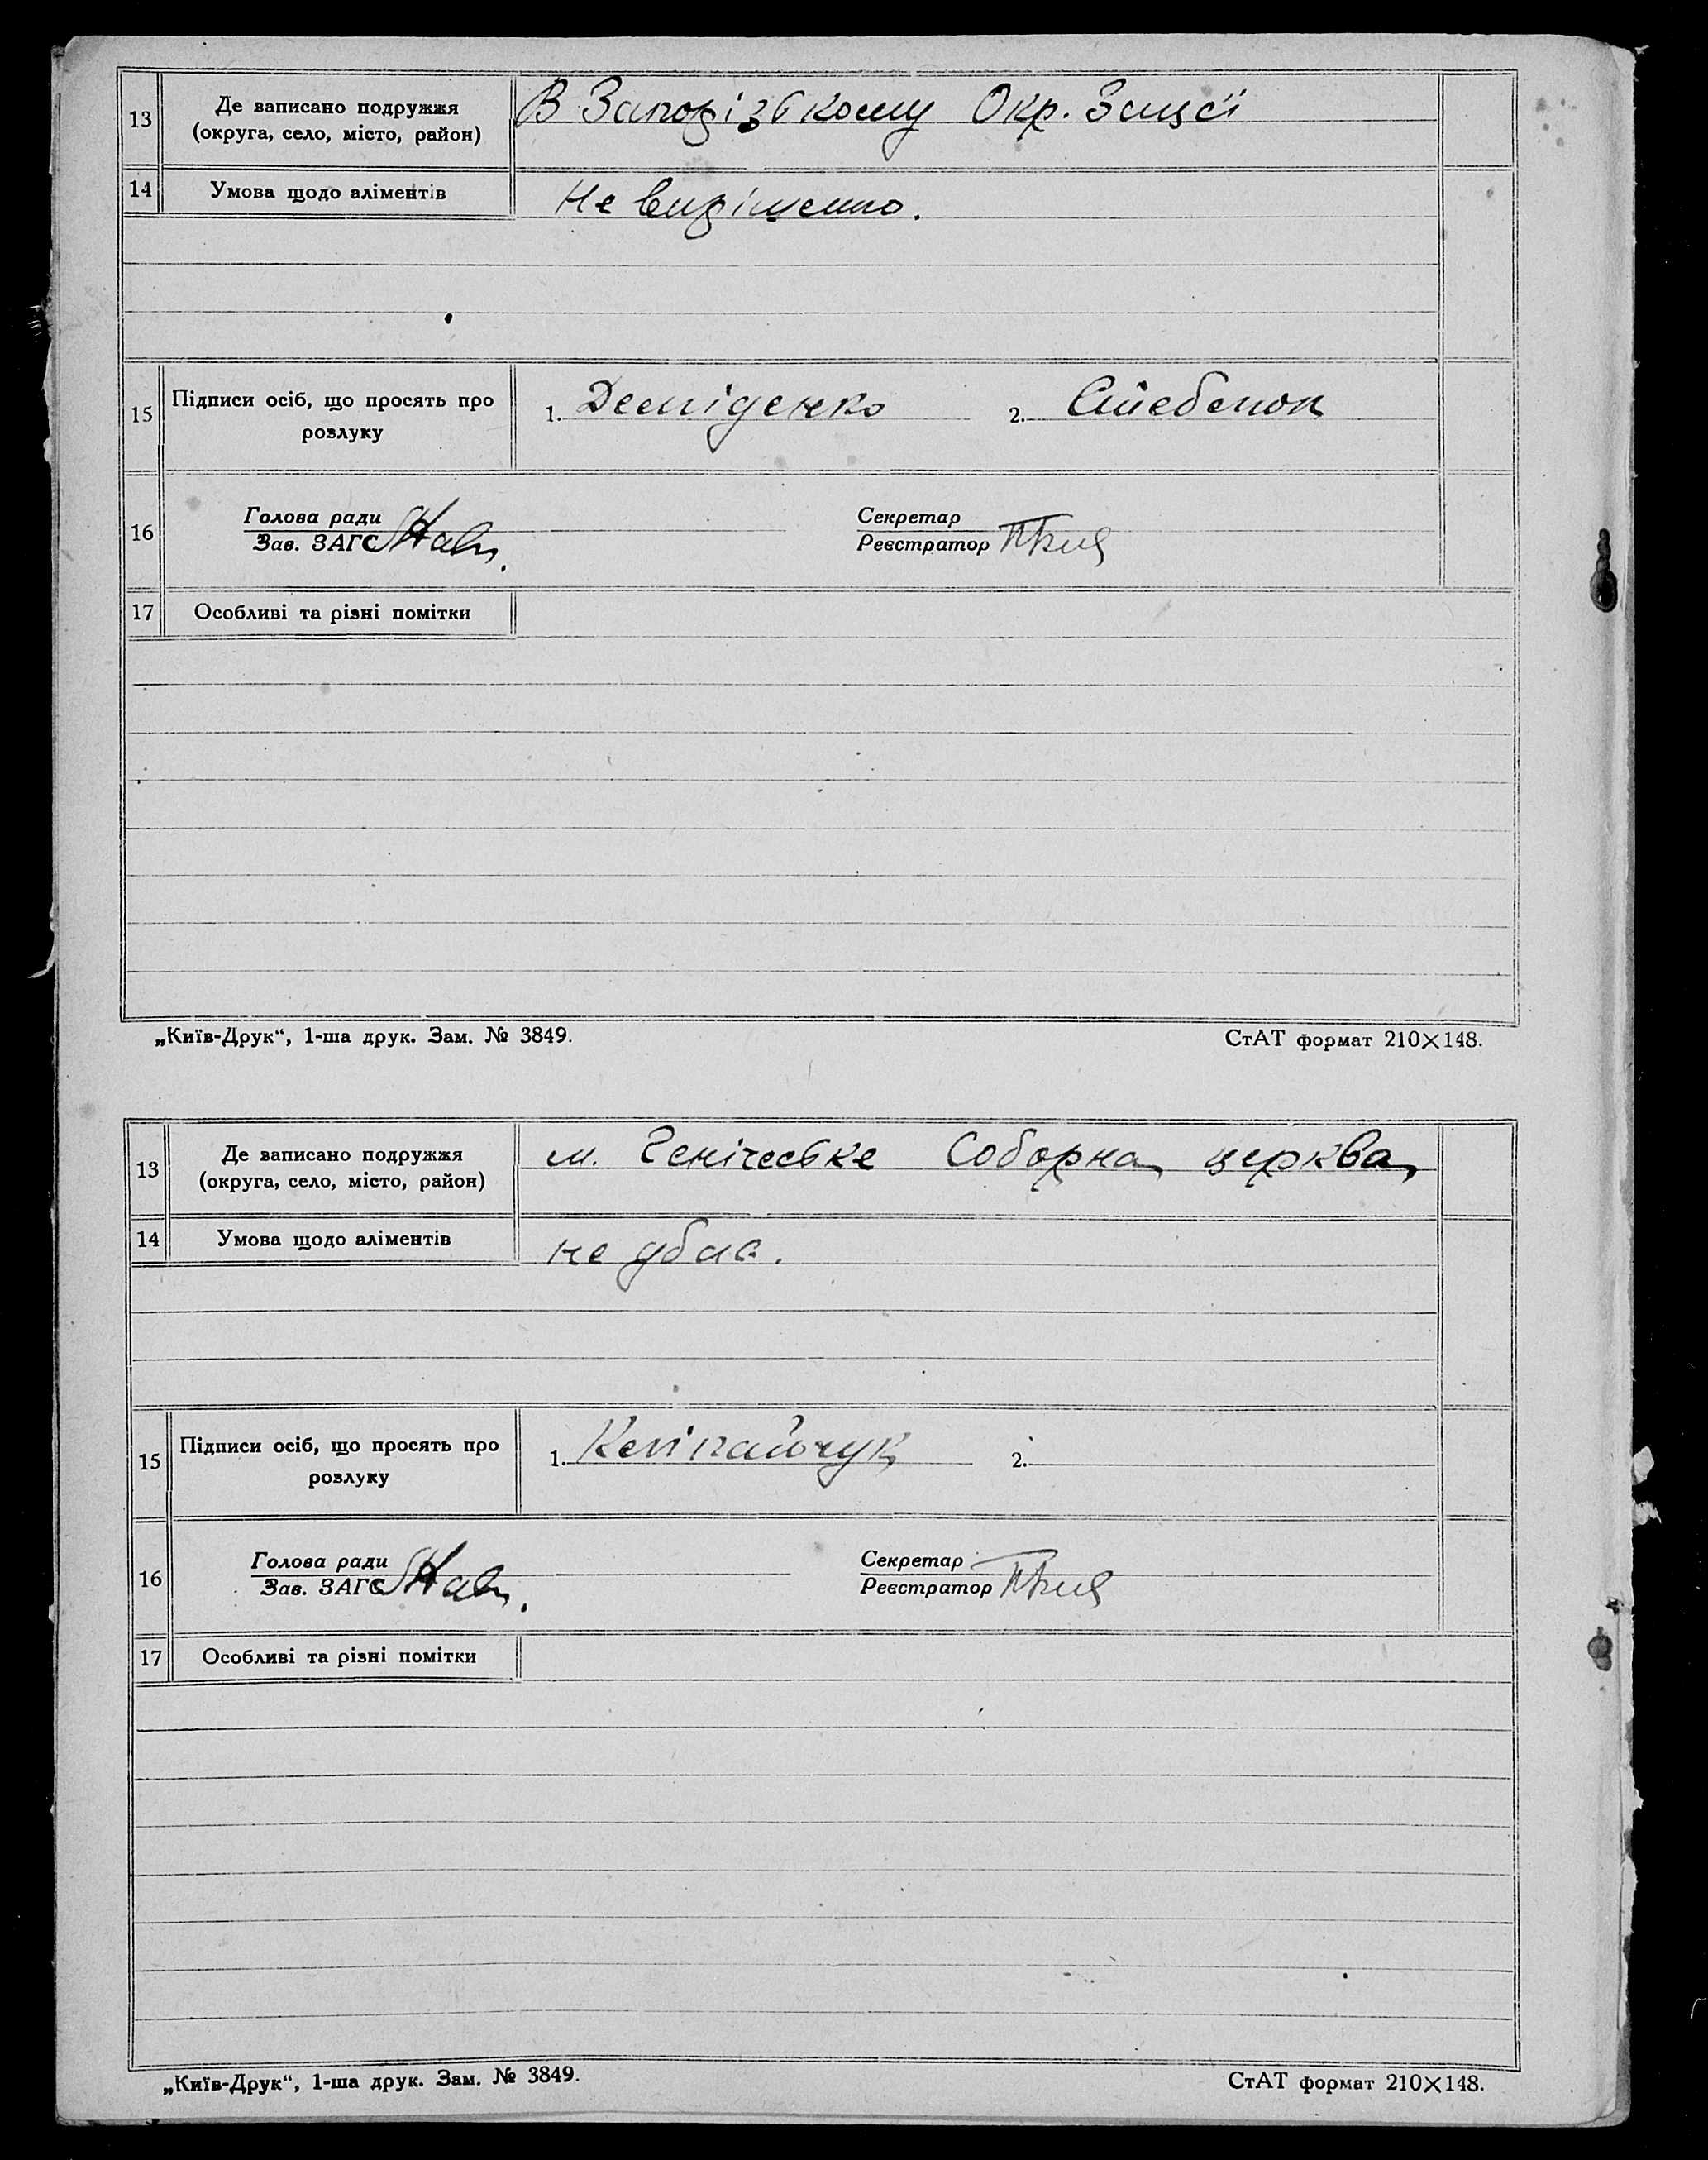 13 Де записано подружжя (округа, село, місто, район) В Запорізькому Окр. Загсі
14 Умова щодо аліментів Не вирішено.
15 Підписи осіб, що просять про розлуку 1. Деміденко 2.
16 Голова ради Секретар
Зав. ЗАГС Реєстратор
17 Особливі та різні помітки
„Київ-Друк“, 1-ша друк. Зам. № 3849. СтАТ формат 210×148.
13 Де записано подружжя (округа, село, місто, район) м. Генічеське Соборна церква
14 Умова щодо аліментів не дбає.
15 Підписи осіб, що просять про розлуку 1. 2.
16 Голова ради Секретар
Зав. ЗАГС Реєстратор
17 Особливі та різні помітки
„Київ-Друк“, 1-ша друк. Зам. № 3849. СтАТ формат 210×148.